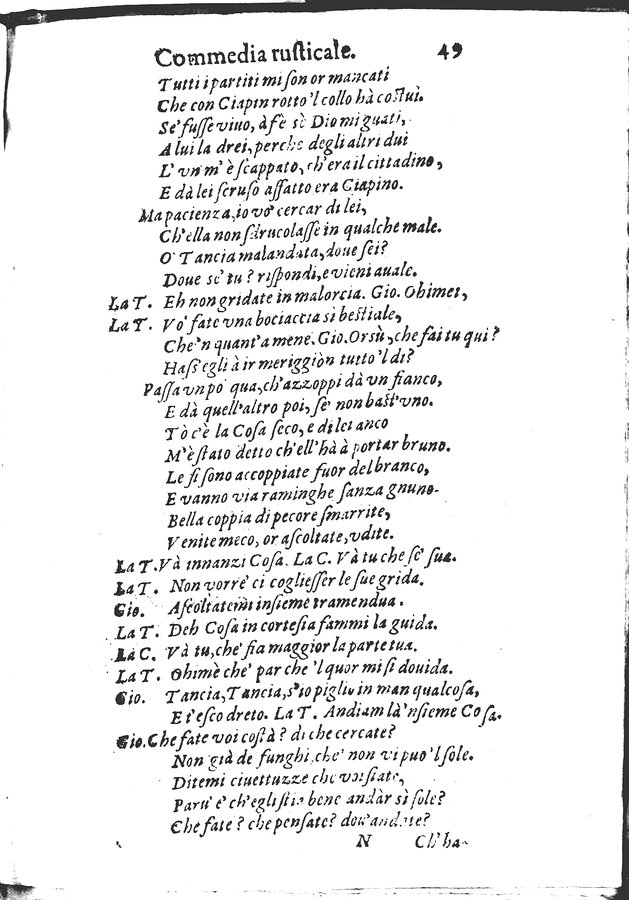 Commedia rusticale. 49
Tutti i partiti mi son or mancati
Che con Ciapin rotto 'l collo hà costui.
Se' fusse viuo, à fè sè Dio mi guati,
A lui la drei, perche degli altri dui
L' vn m' è scappato, ch' era il cittadino,
E dà lei scruso affatto era Ciapino.
Ma pacienza, io vo' cercar di lei,
Ch' ella non sdrucolasse in qualche male.
O' Tancia malandata, doue sei?
Doue se' tu? rispondi, e vieni auale.
La T. Eh non gridate in malorcia. Gio. Ohimei,
La T. Vo' fate vna bociaccia sì bestiale,
Che 'n quant' a mene. Gio. Orsù, che fai tu qui?
Hass' egli à ir meriggion tutto 'l dì?
Passa vn po' qua, ch' azzoppi dà vn fianco,
E dà quell' altro poi, se' non bast' vno.
Tò c'è la Cosa seco, e di lei anco
M'è stato detto ch'ell' hà à portar bruno.
Le si sono accoppiate fuor del branco,
E vanno via raminghe sanza gnuno.
Bella coppia di pecore smarrite,
Venite meco, or ascoltate, vdite.
La T. Và innanzi Cosa. La C. Và tu che se' sua.
La T. Non vorre' ci cogliesser le sue grida.
Gio. Ascoltatemi insieme tramendua.
La T. Deh Cosa in cortesia fammi la guida.
La C. Và tu, che' fia maggior la parte tua.
La T. Ohimè che' par che 'l quor mi si diuida.
Gio. Tancia, Tancia, s'io piglio in man qualcosa,
E t'esco dreto. La T. Andiam là 'nsieme Cosa.
Gio. Che fate voi costà? di che cercate?
Non già de funghi, che' non vi puo 'l sole.
Ditemi ciuettuzze che voi siate,
Paru' e' ch' egli stia bene andar sì sole?
Che fate? che pensate? dou' andate?
N Ch'ha-